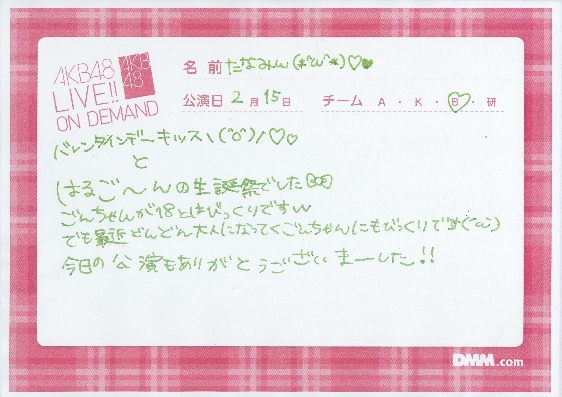 AKB48
LIVE!!
ON DEMAND
AKB
48
名前 たなみん(*'ω'*)♡♥
公演日 2月15日 チーム A・K・B・研
バレンタインデーキッス\(^o^)/♡♡
と
はるご〜んの生誕祭でした
ごんちゃんが18とはびっくりですw
でも最近どんどん大人になってくごんちゃんにもびっくりです('ω')
今日の公演もありがとうございまーした!!
DMM.com